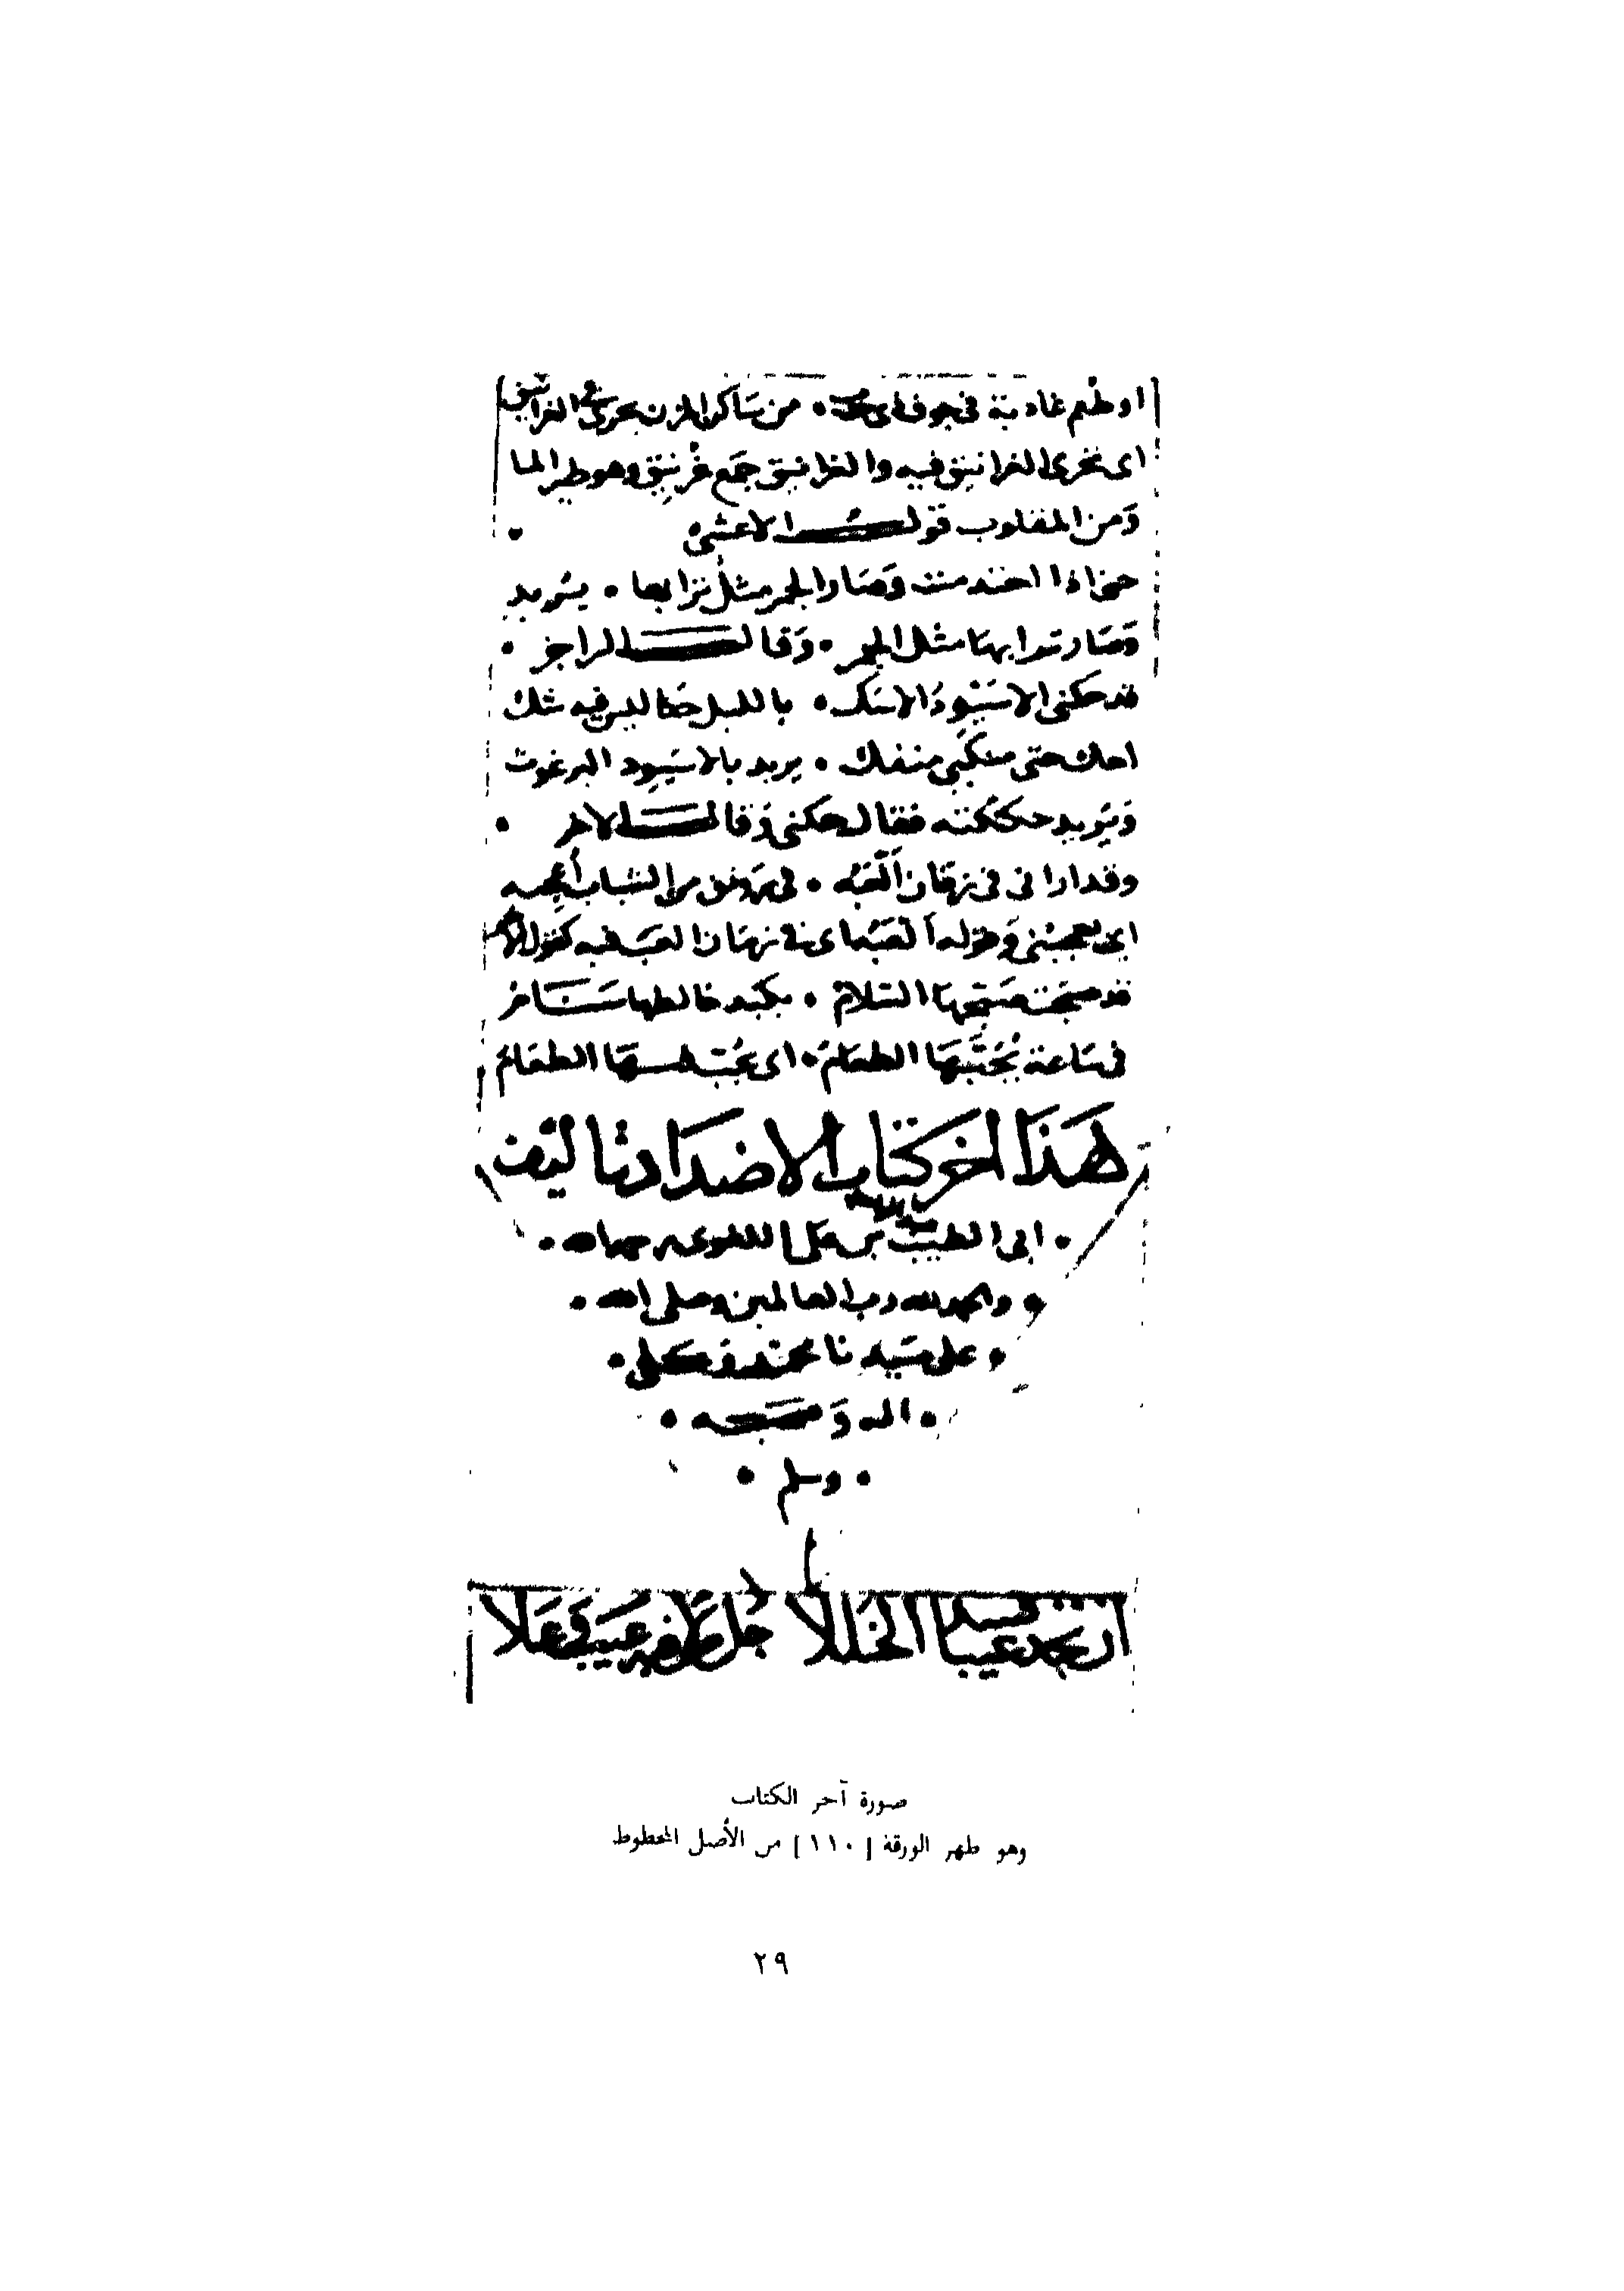 او طعم غادية في جوف ذي حدب • من ساكن المزن يجري في الغرانيق
اى تجرى الغرانيق فيه والغرانيق جمع غرنيق وهو طير الما
ومن المقلوب قول الاعشى •
حتى اذا احتدمت وصار الجمر مثل ترابها • يريد
وصار ترابها مثل الجمر • وقال الراجز •
قد حكنى الاسيود الاسك • بالليل حكا ليس فيه شك
احك حتى منكبي منفك • يريد بالاسيود البرغوث
ويريد حككته فقال حكنى وقال الاخر •
وقد ارانى فى زمان العبه • فى رونق من الشباب اعجبه
اى يعجبنى وقوله العبه اى فى زمان العب فيه كقول الاخر
قد صبحت صبحها السلام • بكبد خالطها سنام
فى ساعة يحبها الطعام • اى يحب فيها الطعام
هذا اخر كتاب الاضداد تاليف
• ابى الطيب بن على اللغوى رحمه الله •
• والحمد لله رب العالمين وصلى الله •
• على سيدنا محمد وعلى •
• اله وصحبه •
• وسلم •
ان تجد عيبا فسد الخللا جل من لا فيه عيب وعلا
صورة آخر الكتاب
وهو ظهر الورقة [ ١١٠ ] من الأصل المخطوط
٢٩